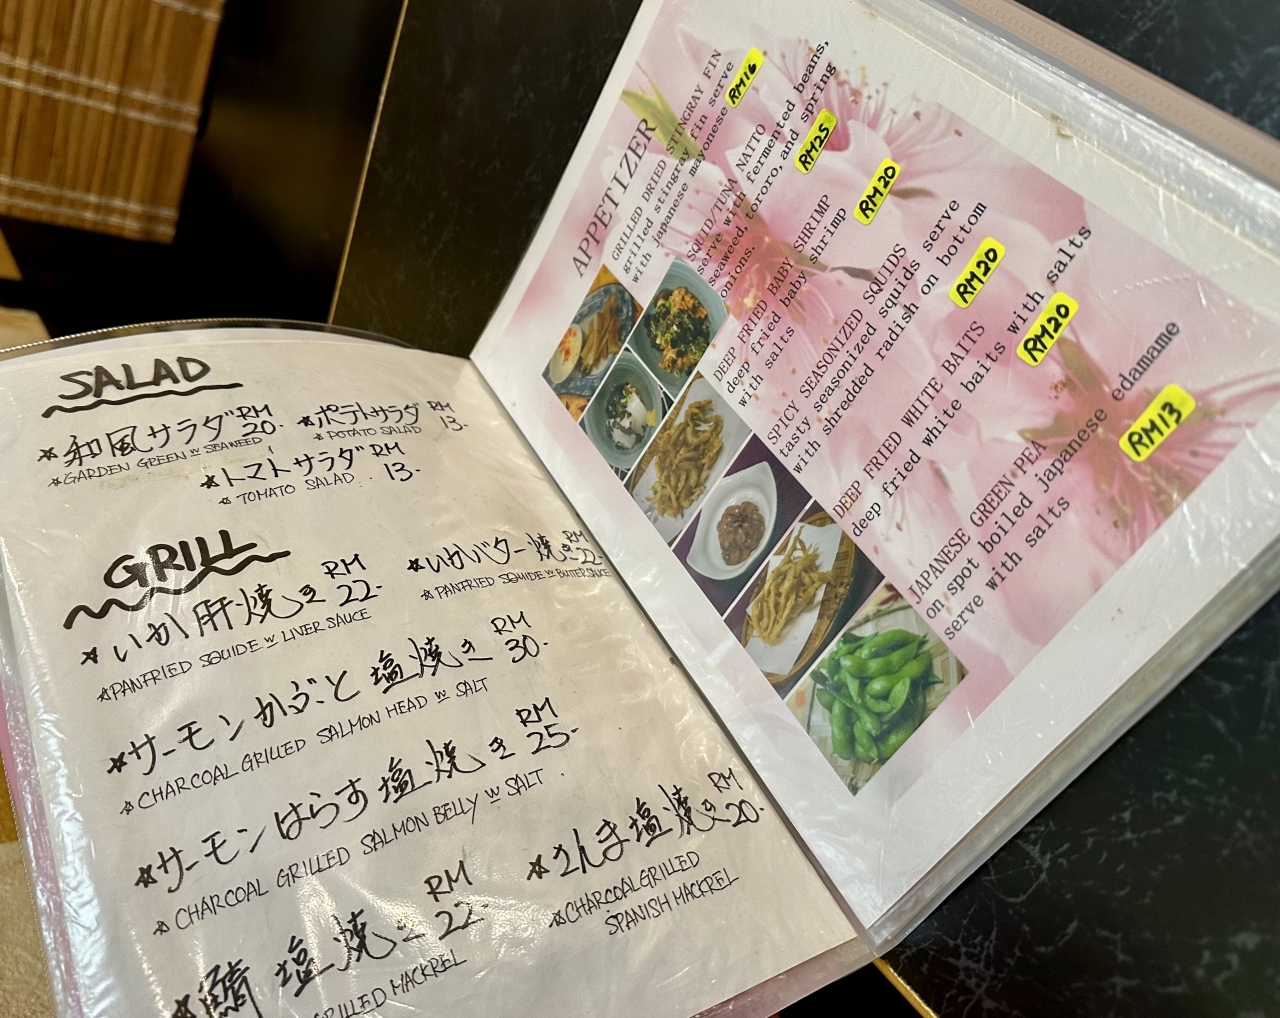 SALAD
☆和風サラダ RM 20.
☆GARDEN GREEN w SEAWEED
☆ポテトサラダ RM 13.
☆POTATO SALAD
☆トマトサラダ RM 13.
☆TOMATO SALAD
GRILL
☆いか肝焼き RM 22.
☆PANFRIED SQUIDE w LIVER SAUCE
☆いかバター焼き RM 22.
☆PANFRIED SQUIDE w BUTTER SAUCE
☆サーモンかぶと塩焼き RM 30.
☆CHARCOAL GRILLED SALMON HEAD w SALT
☆サーモンはらす塩焼き RM 25.
☆CHARCOAL GRILLED SALMON BELLY w SALT
☆さんま塩焼き RM 20.
☆CHARCOAL GRILLED
SPANISH MACKREL
☆鯖塩焼き RM 22.
GRILLED MACKREL
APPETIZER
GRILLED DRIED STINGRAY FIN
grilled stingray fin serve
with japanese mayonese RM16
SQUID/TUNA NATTO
serve with fermented beans,
seaweed, tororo, and spring
onions. RM25
DEEP FRIED BABY SHRIMP
deep fried baby shrimp
with salts RM20
SPICY SEASONIZED SQUIDS
tasty seasonized squids serve
with shredded radish on bottom
RM20
DEEP FRIED WHITE BAITS
deep fried white baits with salts
RM20
JAPANESE GREEN PEA
on spot boiled japanese edamame
serve with salts RM13